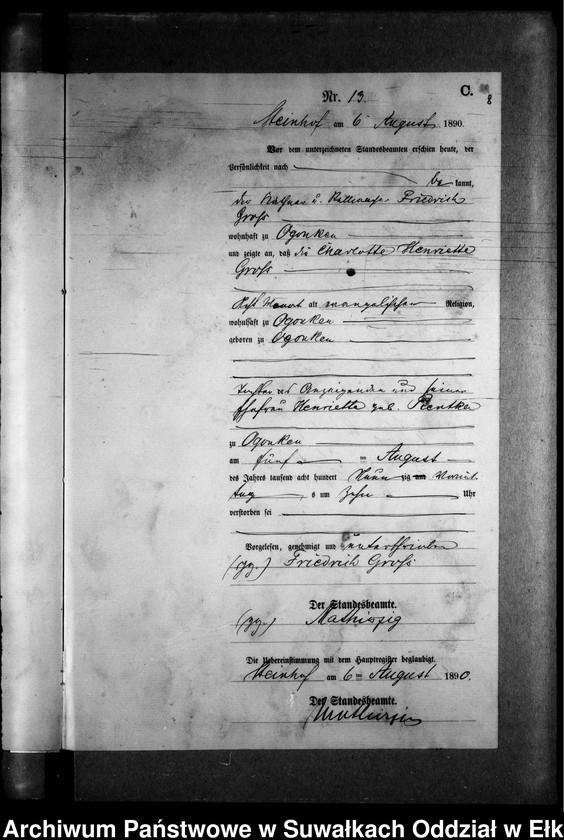 C.
8
Nr. 13.
Steinhof am 6 August 1890.
Vor dem unterzeichneten Standesbeamten erschien heute, der
Persönlichkeit nach
be kannt,
der Käthner u. Friedrich
Groß
wohnhaft zu Ogonken
und zeigte an, daß die Charlotte Henriette
Groß
Monat alt evangelischen Religion,
wohnhaft zu Ogonken
geboren zu Ogonken
Tochter des Anzeigenden und seiner
Ehefrau Henriette geb. Rentka
zu Ogonken
am fünf ten August
des Jahres tausend acht hundert Neun zig um Vormit
tag s um Zehn Uhr
verstorben sei
Vorgelesen, genehmigt und unterschrieben
(gz.) Friedrich Groß
Der Standesbeamte.
(gz.)
Die Uebereinstimmung mit dem Hauptregister beglaubigt.
Steinhof am 6 ten August 1890.
Der Standesbeamte.
Archiwum Państwowe w Suwałkach Oddział w Ełk